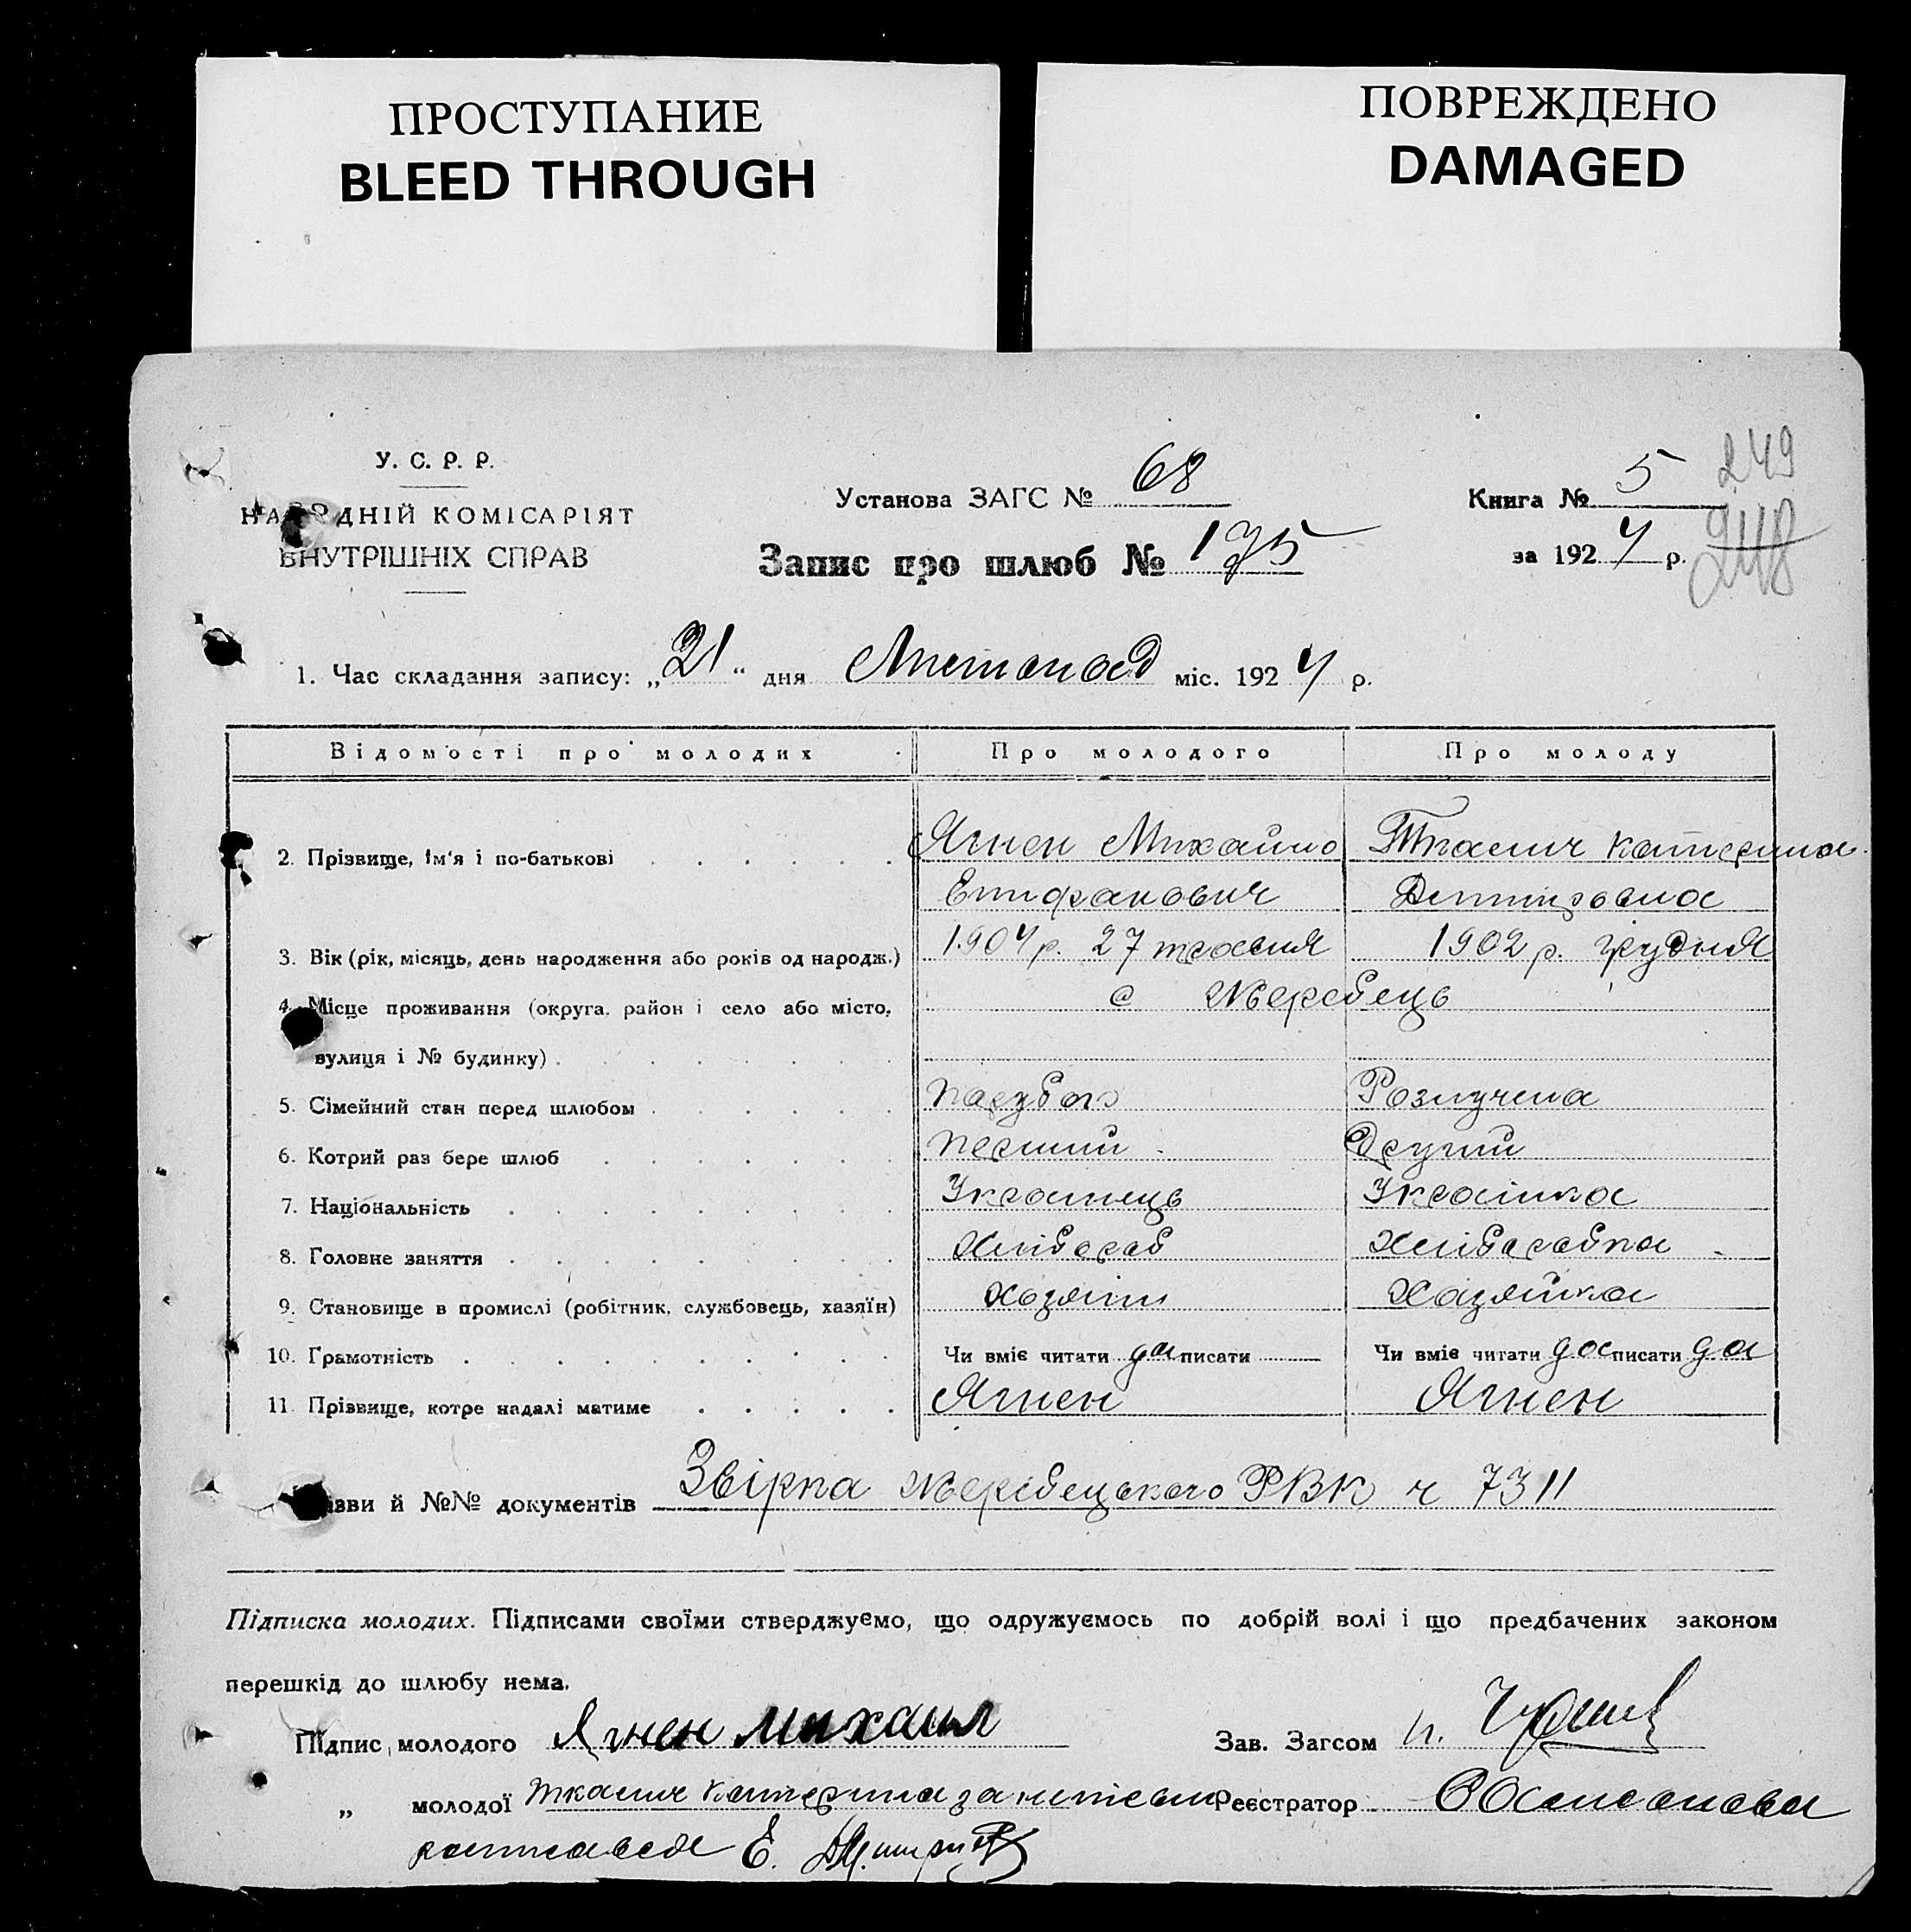 ПРОСТУПАНИЕ
BLEED THROUGH
ПОВРЕЖДЕНО
DAMAGED
249
248
У. С. Р. Р.
НАРОДНІЙ КОМІСАРІЯТ
ВНУТРІШНІХ СПРАВ
Установа ЗАГС № 68
Книга № 5
Запис про шлюб № 175
за 1924 р.
1. Час складання запису: „21“ дня Листопад міс. 1924 р.
Відомості про молодих Про молодого Про молоду
2. Прізвище, ім'я і по-батькові Ягнен Михайло Ткалич Катерина
Епифанович Дмитровна
3. Вік (рік, місяць, день народження або років од народж.) 1904 р. 27 травня 1902 р. грудня
4. Місце проживання (округа, район і село або місто, с Жеребець
вулиця і № будинку)
5. Сімейний стан перед шлюбом парубок Розлучена
6. Котрий раз бере шлюб перший другий
7. Національність Українець Українка
8. Головне заняття Хлібороб Хліборобка
9. Становище в промислі (робітник, службовець, хазяїн) Хозяїн Хазяйка
10. Грамотність Чи вміє читати да писати Чи вміє читати да писати да
11. Прізвище, котре надалі матиме Ягнен Ягнен
ізви й №№ документів Звірка Жеребецького РВК ч 7311
Підписка молодих. Підписами своїми стверджуємо, що одружуємось по добрій волі і що предбачених законом
перешкід до шлюбу нема.
Підпис молодого Ягнен Михаил Зав. Загсом
„ молодої Ткалич Катерина за Реєстратор